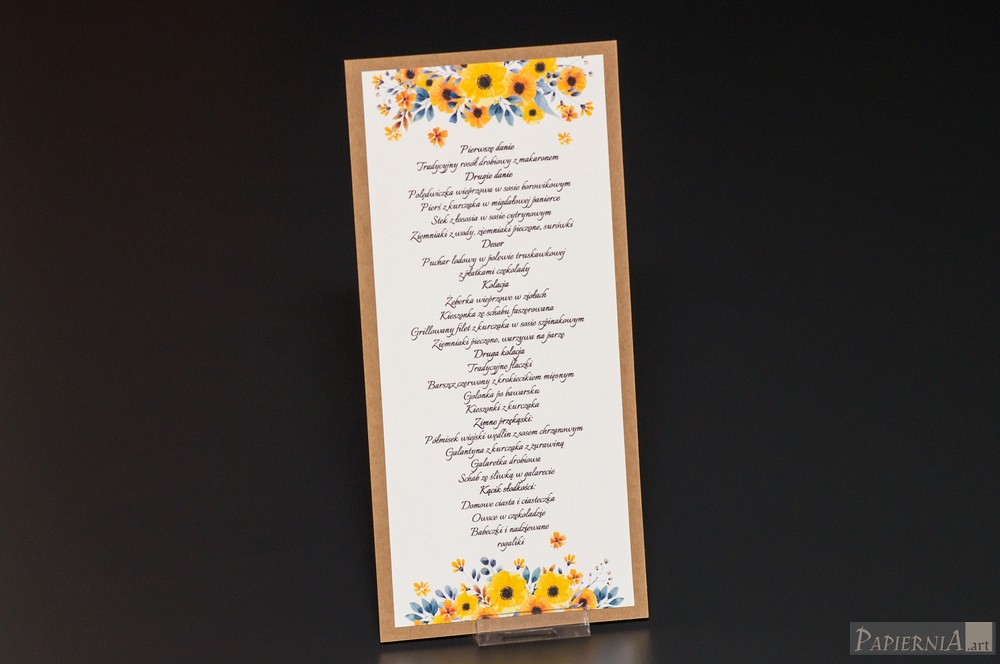 Pierwsze danie
Tradycyjny rosół drobiowy z makaronem
Drugie danie
Polędwiczka wieprzowa w sosie borowikowym
Pierś z kurczaka w migdałowej panierce
Stek z łososia w sosie cytrynowym
Ziemniaki z wody, ziemniaki pieczone, surówki
Deser
Puchar lodowy w polewie truskawkowej
z płatkami czekolady
Kolacja
Żeberka wieprzowe w ziołach
Kieszonka ze schabu faszerowana
Grillowany filet z kurczaka w sosie szpinakowym
Ziemniaki pieczone, warzywa na parze
Druga kolacja
Tradycyjne flaczki
Barszcz czerwony z krokiecikiem mięsnym
Golonka po bawarsku
Kieszonki z kurczaka
Zimne przekąski:
Półmisek wiejski wędlin z sosem chrzanowym
Galantyna z kurczaka z żurawiną
Galaretka drobiowa
Schab ze śliwką w galarecie
Kącik słodkości:
Domowe ciasta i ciasteczka
Owoce w czekoladzie
Babeczki i nadziewane
rogaliki
PAPIERNIA.art